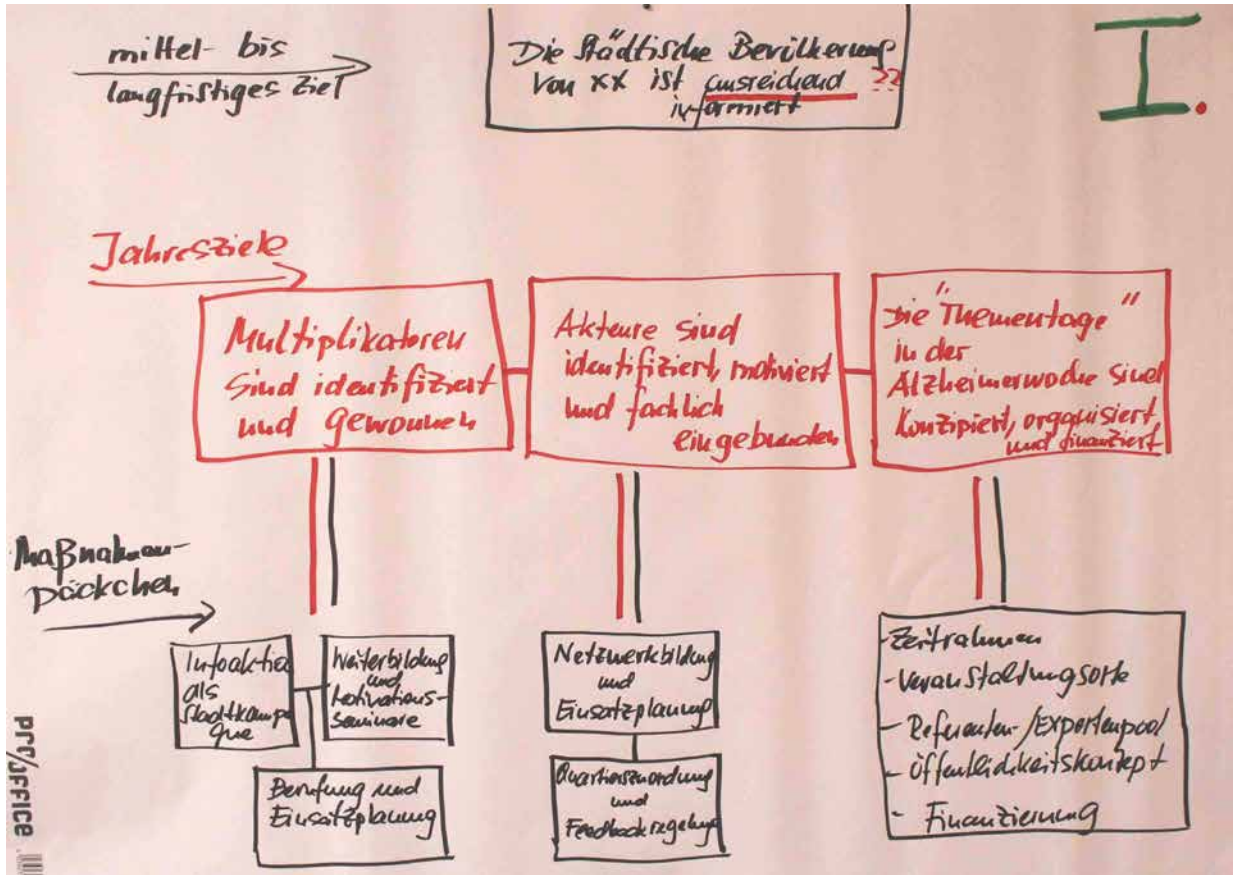 mittel- bis
langfristiges Ziel
Die Städtische Bevölkerung
von xx ist ausreichend ??
informiert
I.
Jahresziele
Multiplikatoren
sind identifiziert
und gewonnen
Akteure sind
identifiziert, motiviert
und fachlich
eingebunden
Die "Thementage"
in der
Alzheimerwoche sind
konzipiert, organisiert
und finanziert
Maßnahmen-
päckchen
Infoaktion
als
Stadtkampa
gne
Weiterbildung
und
Motivations-
seminare
Berufung und
Einsatzplanung
Netzwerkbildung
und
Einsatzplanung
Quartierszuordnung
und
Feedbackregelung
- Zeitrahmen
- Veranstaltungsorte
- Referenten-/Expertenpool
- Öffentlichkeitskonzept
- Finanzierung
pro/office